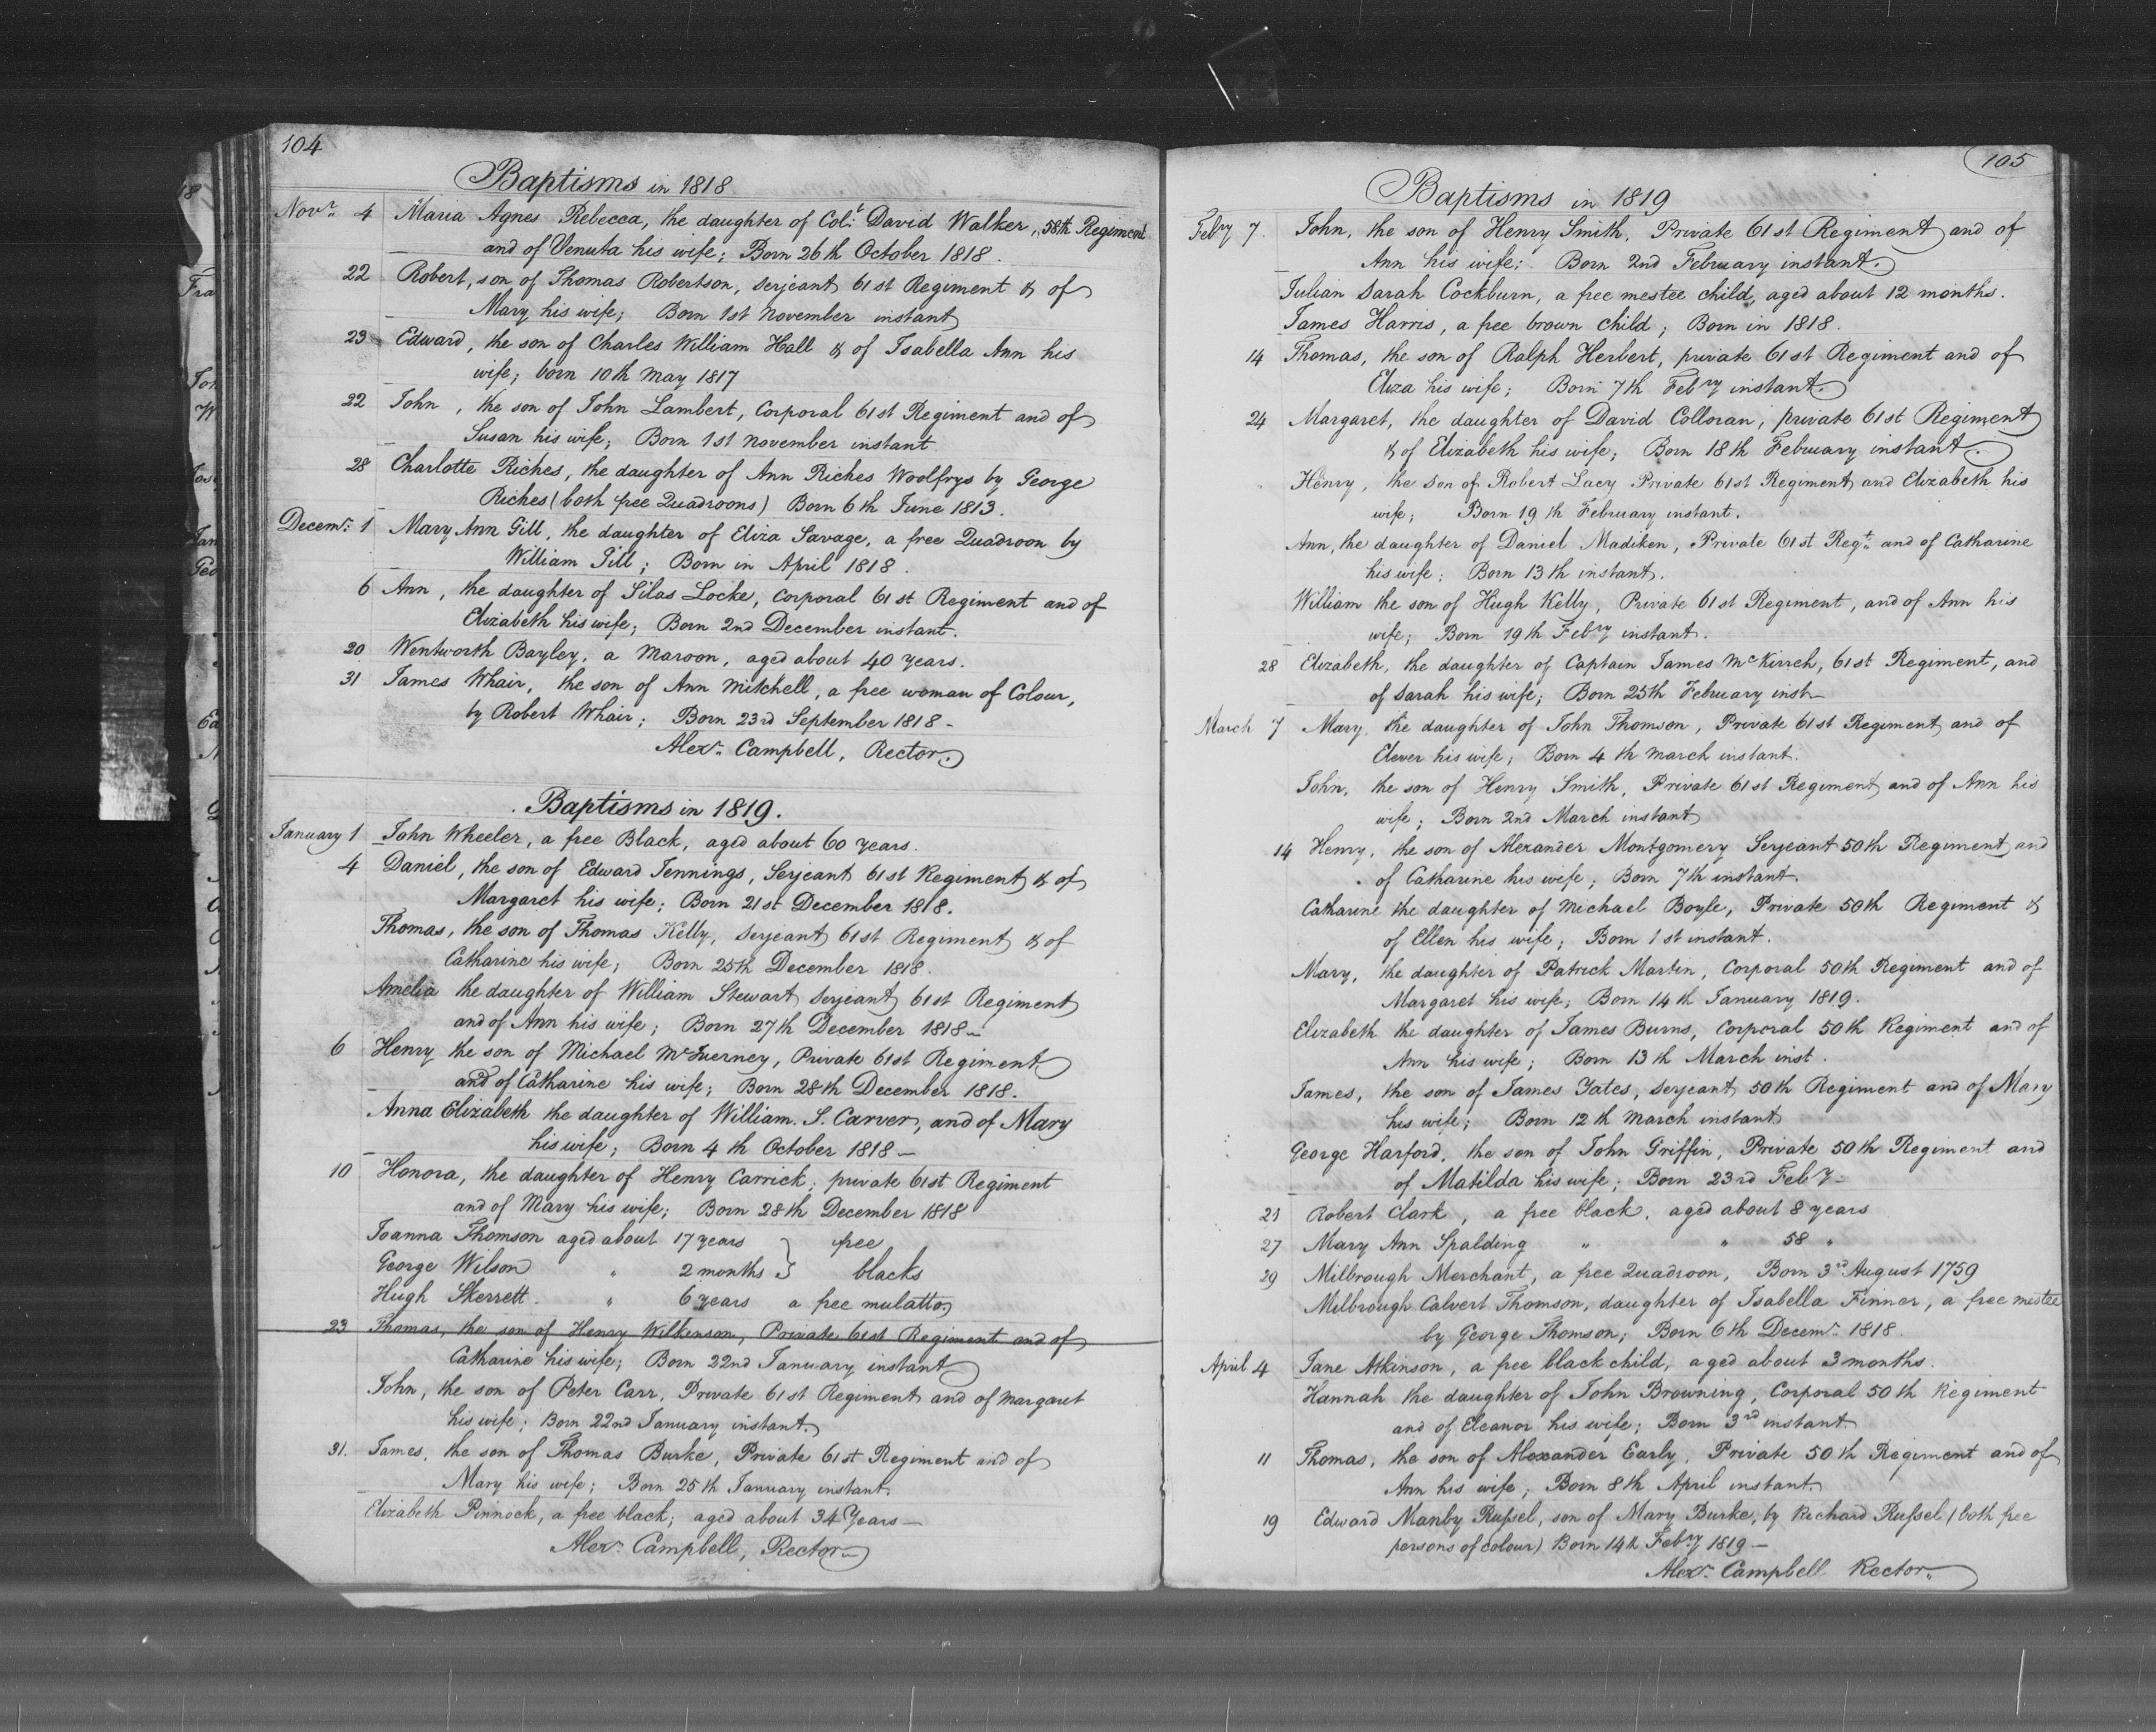 104
Baptisms in 1818
Novr. 4 Maria Agnes Rebecca, the daughter of Colt. David Walker, 58th Regiment
and of Venuta his wife; Born 26th October 1818.
22 Robert, son of Thomas Robertson, Serjeant 61st Regiment & of
Mary his wife; Born 1st November instant
23 Edward, the son of Charles William Hall & of Isabella Ann his
wife; born 10th May 1817
22 John, the son of John Lambert, Corporal 61st Regiment and of
Susan his wife; Born 1st November instant
28 Charlotte Riches, the daughter of Ann Riches Woolfrys by George
Riches (both free Quadroons) Born 6th June 1813.
Decemr. 1 Mary Ann Gill, the daughter of Eliza Savage, a free Quadroon by
William Till; Born in April 1818.
6 Ann, the daughter of Silas Locke, Corporal 61st Regiment and of
Elizabeth his wife; Born 2nd December instant.
20 Wentworth Bayley, a Maroon, aged about 40 years.
31 James Whair, the son of Ann Mitchell, a free woman of Colour,
by Robert Whair; Born 23rd September 1818 -
Alexr. Campbell, Rector.
Baptisms in 1819.
January 1 John Wheeler, a free Black, aged about 60 years.
4 Daniel, the son of Edward Jennings, Serjeant 61st Regiment & of
Margaret his wife; Born 21st December 1818.
Thomas, the son of Thomas Kelly, Serjeant 61st Regiment & of
Catharine his wife; Born 25th December 1818.
Amelia the daughter of William Stewart Serjeant 61st Regiment
and of Ann his wife; Born 27th December 1818 -
6 Henry the son of Michael McInerney, Private 61st Regiment
and of Catharine his wife; Born 28th December 1818.
Anna Elizabeth the daughter of William. S. Carver, and of Mary
his wife; Born 4th October 1818 -
10 Honora, the daughter of Henry Carrick; private 61st Regiment
and of Mary his wife; Born 28th December 1818
Joanna Thomson aged about 17 years } free
George Wilson " 2 months } blacks
Hugh Skerrett " 6 years a free mulatto
23 Thomas, the son of Henry Wilkinson, Private 61st Regiment and of
Catharine his wife; Born 22nd January instant
John, the son of Peter Carr, Private 61st Regiment and of Margaret
his wife; Born 22nd January instant.
31. James, the son of Thomas Burke, Private 61st Regiment and of
Mary his wife; Born 25th January instant.
Elizabeth Pinnock, a free black; aged about 34 Years -
Alexr. Campbell, Rector
105
Baptisms in 1819
Febry 7. John, the son of Henry Smith, Private 61st Regiment and of
Ann his wife; Born 2nd February instant.
Julian Sarah Cockburn, a free mestee child, aged about 12 months.
James Harris, a free brown child; Born in 1818.
14 Thomas, the son of Ralph Herbert, private 61st Regiment and of
Eliza his wife; Born 7th Febry instant.
24 Margaret, the daughter of David Colloran, private 61st Regiment
& of Elizabeth his wife; Born 18th February instant.
Henry, the Son of Robert Lacy Private 61st Regiment and Elizabeth his
wife; Born 19th February instant.
Ann, the daughter of Daniel Madiken, Private 61st Regt. and of Catharine
his wife; Born 13th instant.
William the son of Hugh Kelly, Private 61st Regiment, and of Ann his
wife; Born 19th Febry instant.
28 Elizabeth, the daughter of Captain James McKirreh, 61st Regiment, and
of Sarah his wife; Born 25th February inst -
March 7 Mary, the daughter of John Thomson, Private 61st Regiment and of
Elever his wife; Born 4th March instant.
John, the son of Henry Smith, Private 61st Regiment and of Ann his
wife; Born 2nd March instant
14 Henry, the son of Alexander Montgomery Serjeant 50th Regiment and
of Catharine his wife; Born 7th instant.
Catharine the daughter of Michael Boyle, Private 50th Regiment &
of Ellen his wife; Born 1st instant.
Mary, the daughter of Patrick Martin, Corporal 50th Regiment and of
Margaret his wife; Born 14th January 1819.
Elizabeth the daughter of James Burns, Corporal 50th Regiment and of
Ann his wife; Born 13th March inst.
James, the son of James Yates, Serjeant 50th Regiment and of Mary
his wife; Born 12th March instant
George Harford, the son of John Griffin, Private 50th Regiment and
of Matilda his wife; Born 23rd Feby -
Robert Clark, a free black, aged about 8 years
27 Mary Ann Spalding " " 58 "
29 Milbrough Merchant, a free Quadroon, Born 3rd August 1759
Milbrough Calvert Thomson, daughter of Isabella Finner, a free mestee
by George Thomson; Born 6th Decemr. 1818.
April 4 Jane Atkinson, a free black child, aged about 3 months.
Hannah the daughter of John Browning, Corporal 50th Regiment
and of Eleanor his wife; Born 3rd instant.
11 Thomas, the son of Alexander Early, Private 50th Regiment and of
Ann his wife; Born 8th April instant.
19 Edward Manby Russel, son of Mary Burke, by Richard Russel (both free
persons of colour) Born 14th Febry 1819 -
Alexr. Campbell Rector.